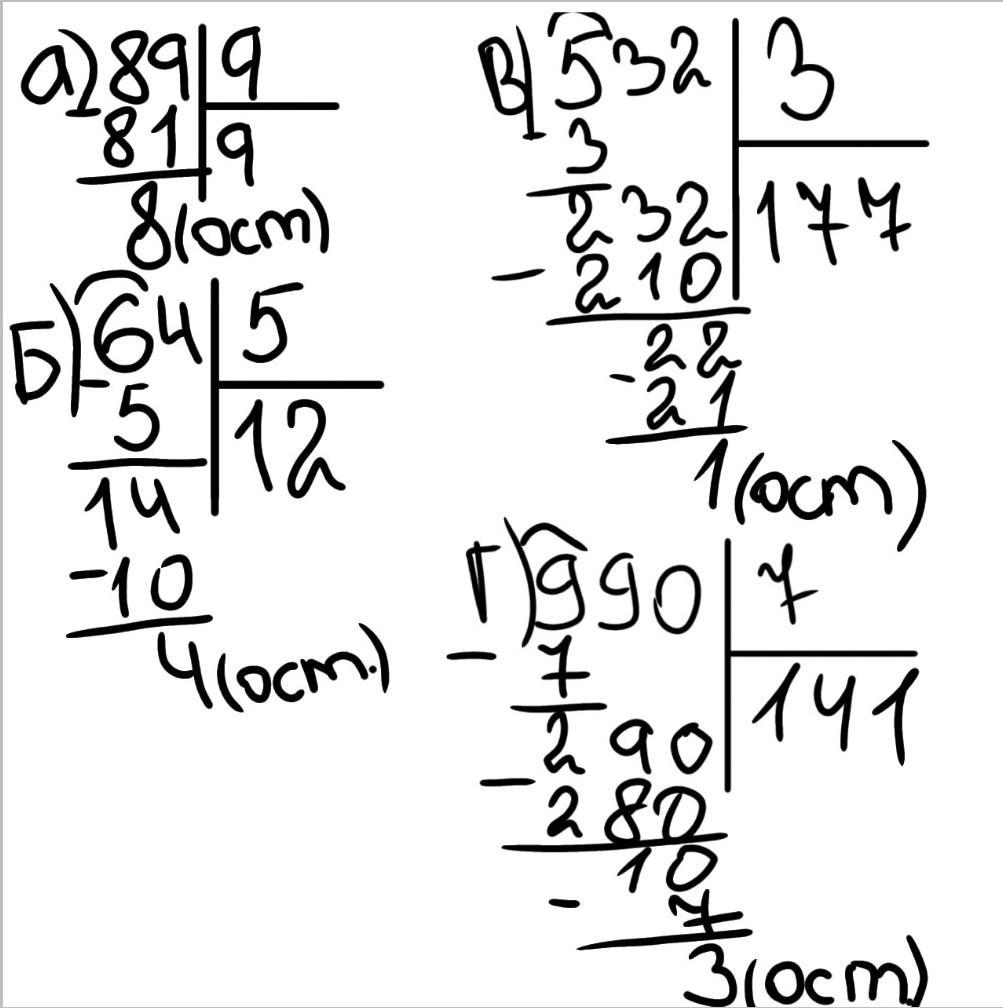 а) 89 9
81 9
8 (ост)
Б) 64 5
- 5 12
14
- 10
4 (ост.)
В) 532 3
- 3
232 177
- 210
22
- 21
1 (ост)
Г) 990 7
- 7
290 141
- 280
10
- 7
3 (ост)